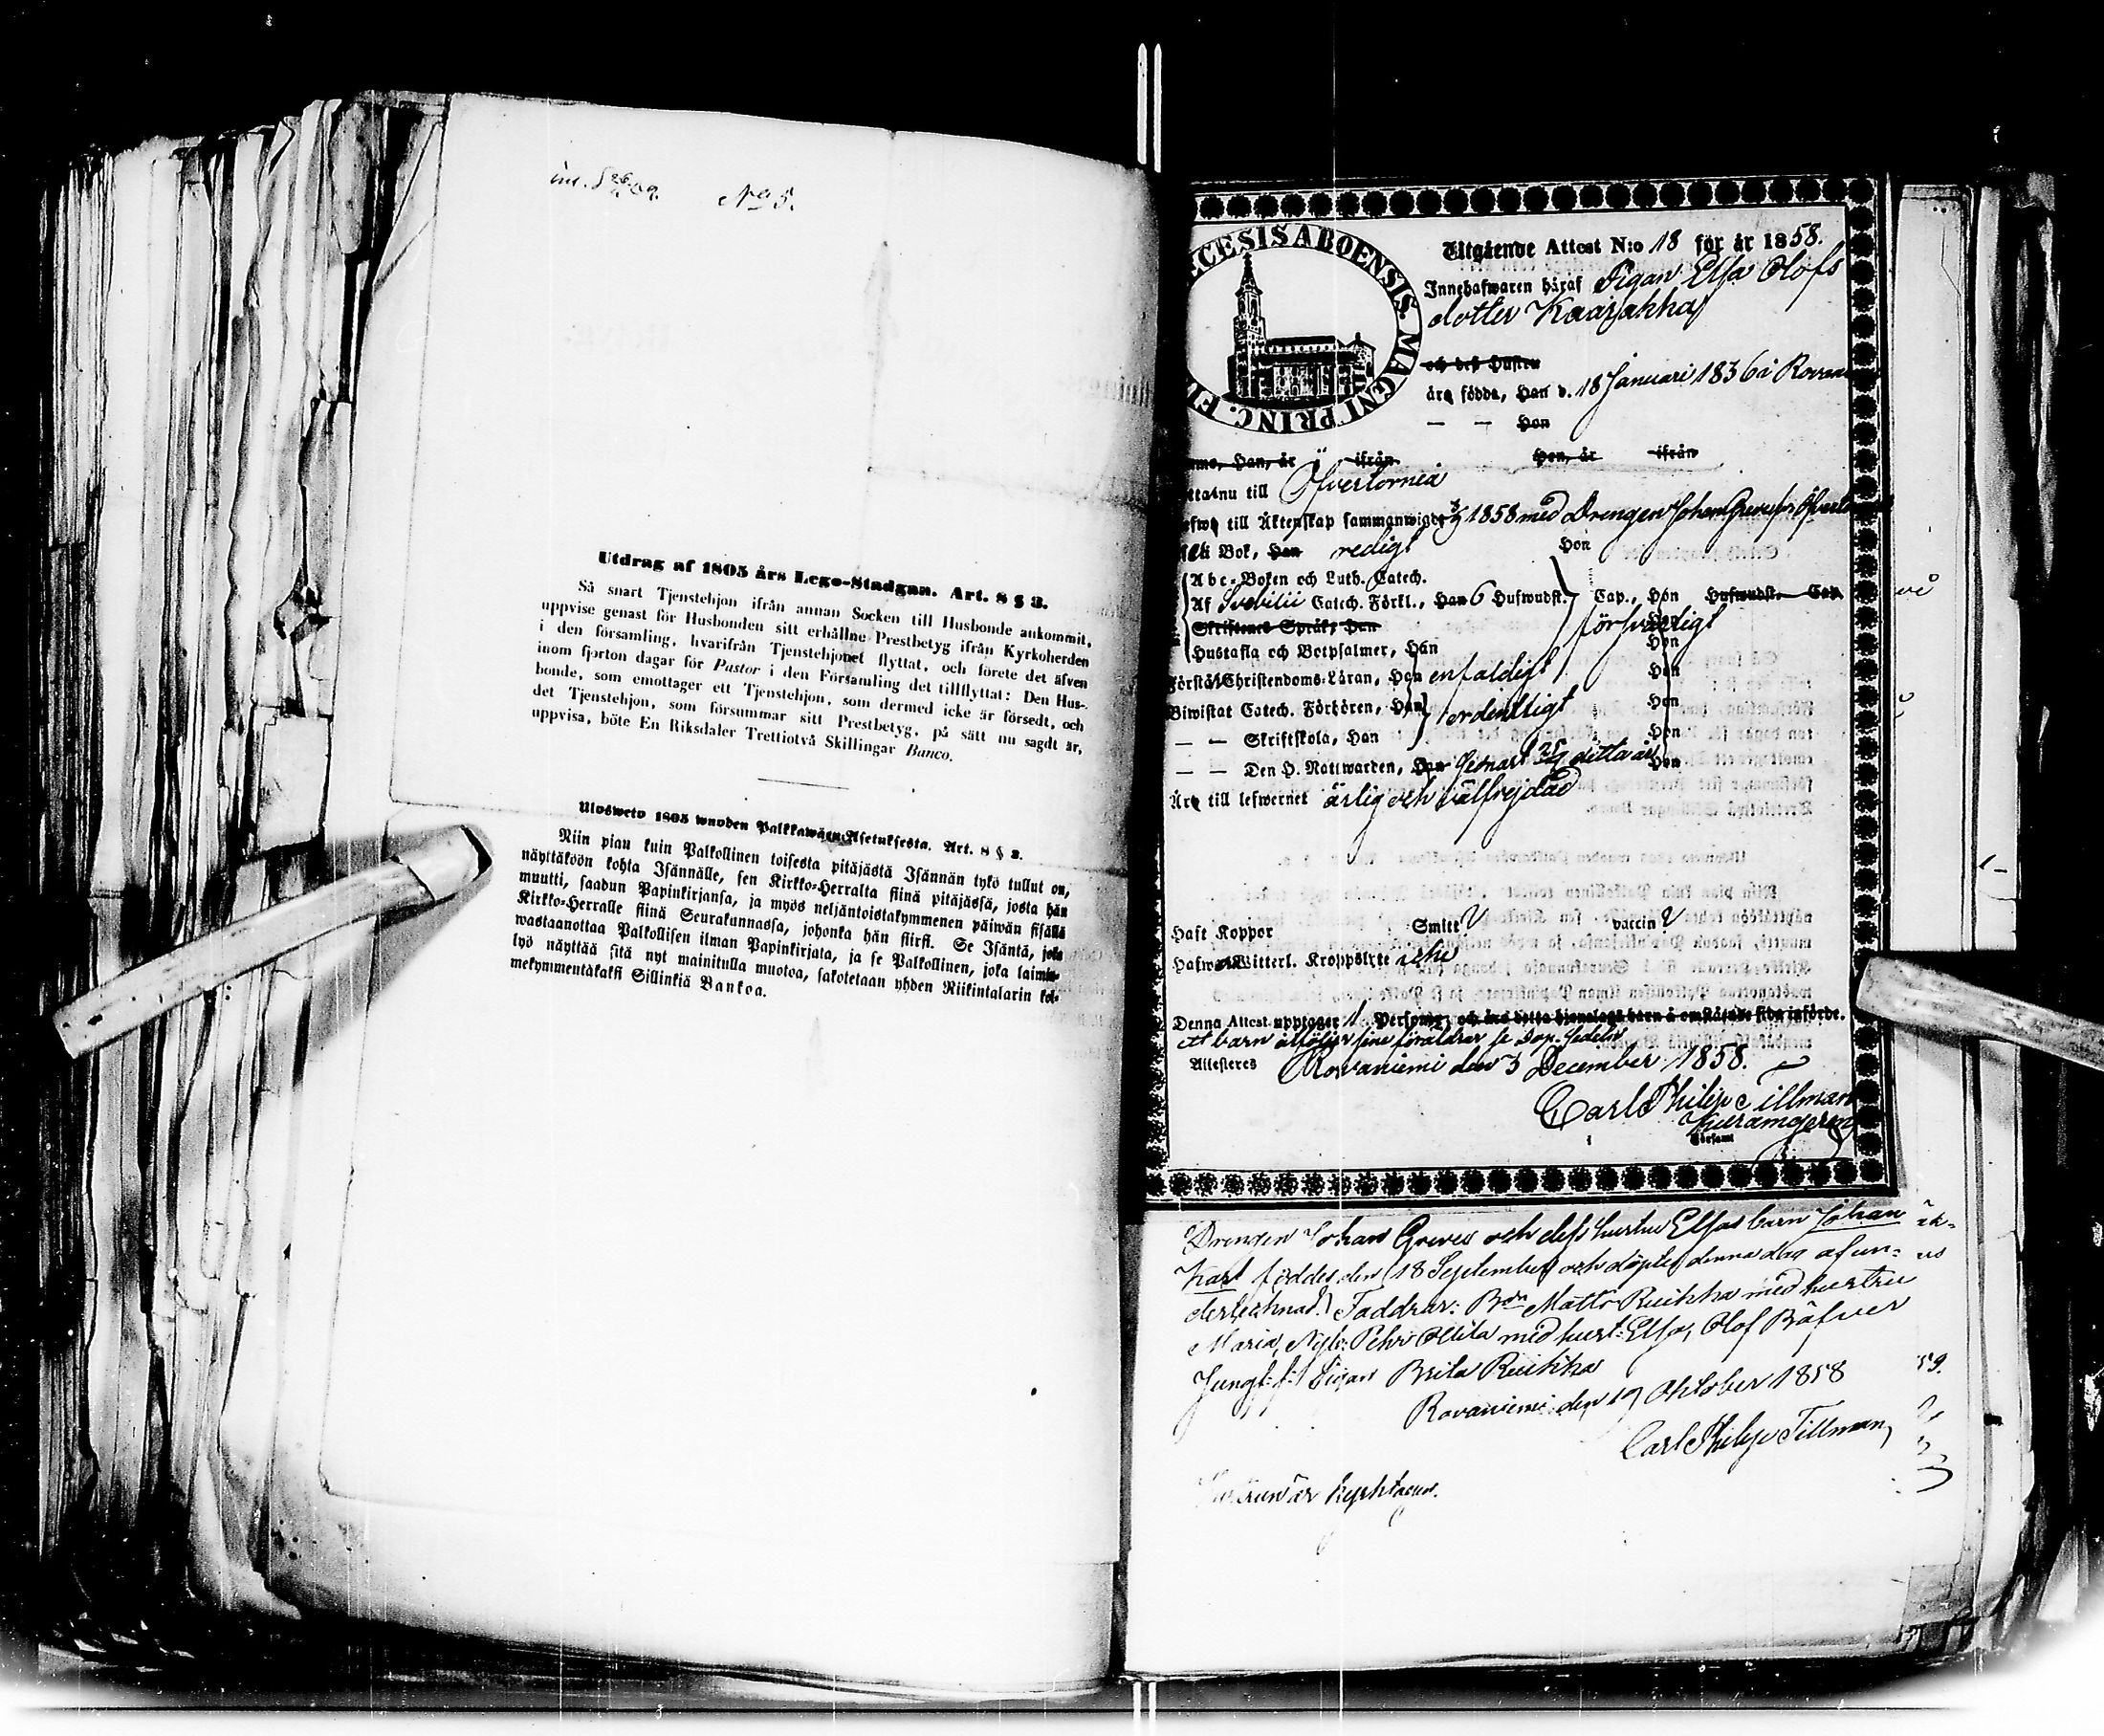 No 5.
Utdrag af 1805 års Lego-Stadgan. Art. 8 § 3.
Så snart Tjenstehjon ifrån annan Socken till Husbonde ankommit,
uppvise genast för Husbonden sitt erhållne Prestbetyg ifrån Kyrkoherden
i den församling, hvarifrån Tjenstehjonet flyttat, och förete det äfven
inom fjorton dagar för Pastor i den Församling det tillflyttat: Den Hus-
bonde, som emottager ett Tjenstehjon, som dermed icke är försedt, och
det Tjenstehjon, som försummar sitt Prestbetyg, på sätt nu sagdt är,
uppvisa, böte En Riksdaler Trettiotvå Skillingar Banco.
Ulosweto 1805 wuoden Palkkawäen Asetuksesta. Art. 8 § 3.
Niin pian kuin Palkollinen toisesta pitäjästä Isännän tykö tullut on,
näyttäköön kohta Isännälle, sen Kirkko-Herralta siinä pitäjässä, josta hän
muutti, saadun Papinkirjansa, ja myös neljäntoistakymmenen päiwän sisällä
Kirkko-Herralle siinä Seurakunnassa, johonka hän siirsi. Se Isäntä, joka
wastaanottaa Palkollisen ilman Papinkirjata, ja se Palkollinen, joka laimin-
lyö näyttää sitä nyt mainitulla muotoa, sakotetaan yhden Riikintalarin kol-
mekymmentäkaksi Sillinkiä Bankoa.
ECESIS ABOENSIS. MAGNI PRINC. FI
Utgående Attest N:o 18 för år 1858.
Innehafwaren häraf Pigan Elsa Olofs
dotter Kaarakka
och deß Hustru
äro födde, Han d. 18 Januari 1836 i Rovan
— — Hon
Han, är ifrån Hon, är ifrån
nu till Öfvertorneå
till Äktenskap sammanwigde 1858 med Drengen Johan Greus fr Öfvert
i Bok, Han redigt Hon
Abc-Boken och Luth. Catech.
Af Svebilii Catech. Förkl., Han 6 Hufwudst. Cap., Hon Hufwudst. Cap.
Skriftenes Språk, Han försvarligt Hon
Hustafla och Botpsalmer, Han Hon
Förstå Christendoms-Läran, Han enfaldigt Hon
Biwistat Catech. Förhören, Han ordentligt Hon
— — Skriftskola, Han Hon
— — Den H. Nattwarden, Han senast detta år Hon
Äro till lefwernet ärlig och välfrejdad
Haft Koppor Smitt V vaccin V
Hafwa Witterl. Kroppslyte icke
Denna Attest upptager 1 Person, och äro detta hjonelags barn å omstående sida införde.
ett barn åtföljer sine föräldrar se Dop-sedeln
Attesteres Rovaniemi den 3 December 1858.
Carl Philip Tillman
Församl
Drengen Johan Greus och dess hustru Elsas barn Johan
Karl föddes den 18 September och döptes denna dag af un-
dertecknad. Faddrar: Bdn Matts Ruikka med hustru
Maria, Nyb: Pehr Ollila med hust: Elsa, Olof Räfver
Jungf: f: Pigan Brita Ruikka
Rovaniemi den 19 Oktober 1858
Carl Philip Tillman,
Hustrun är kyrktagen.